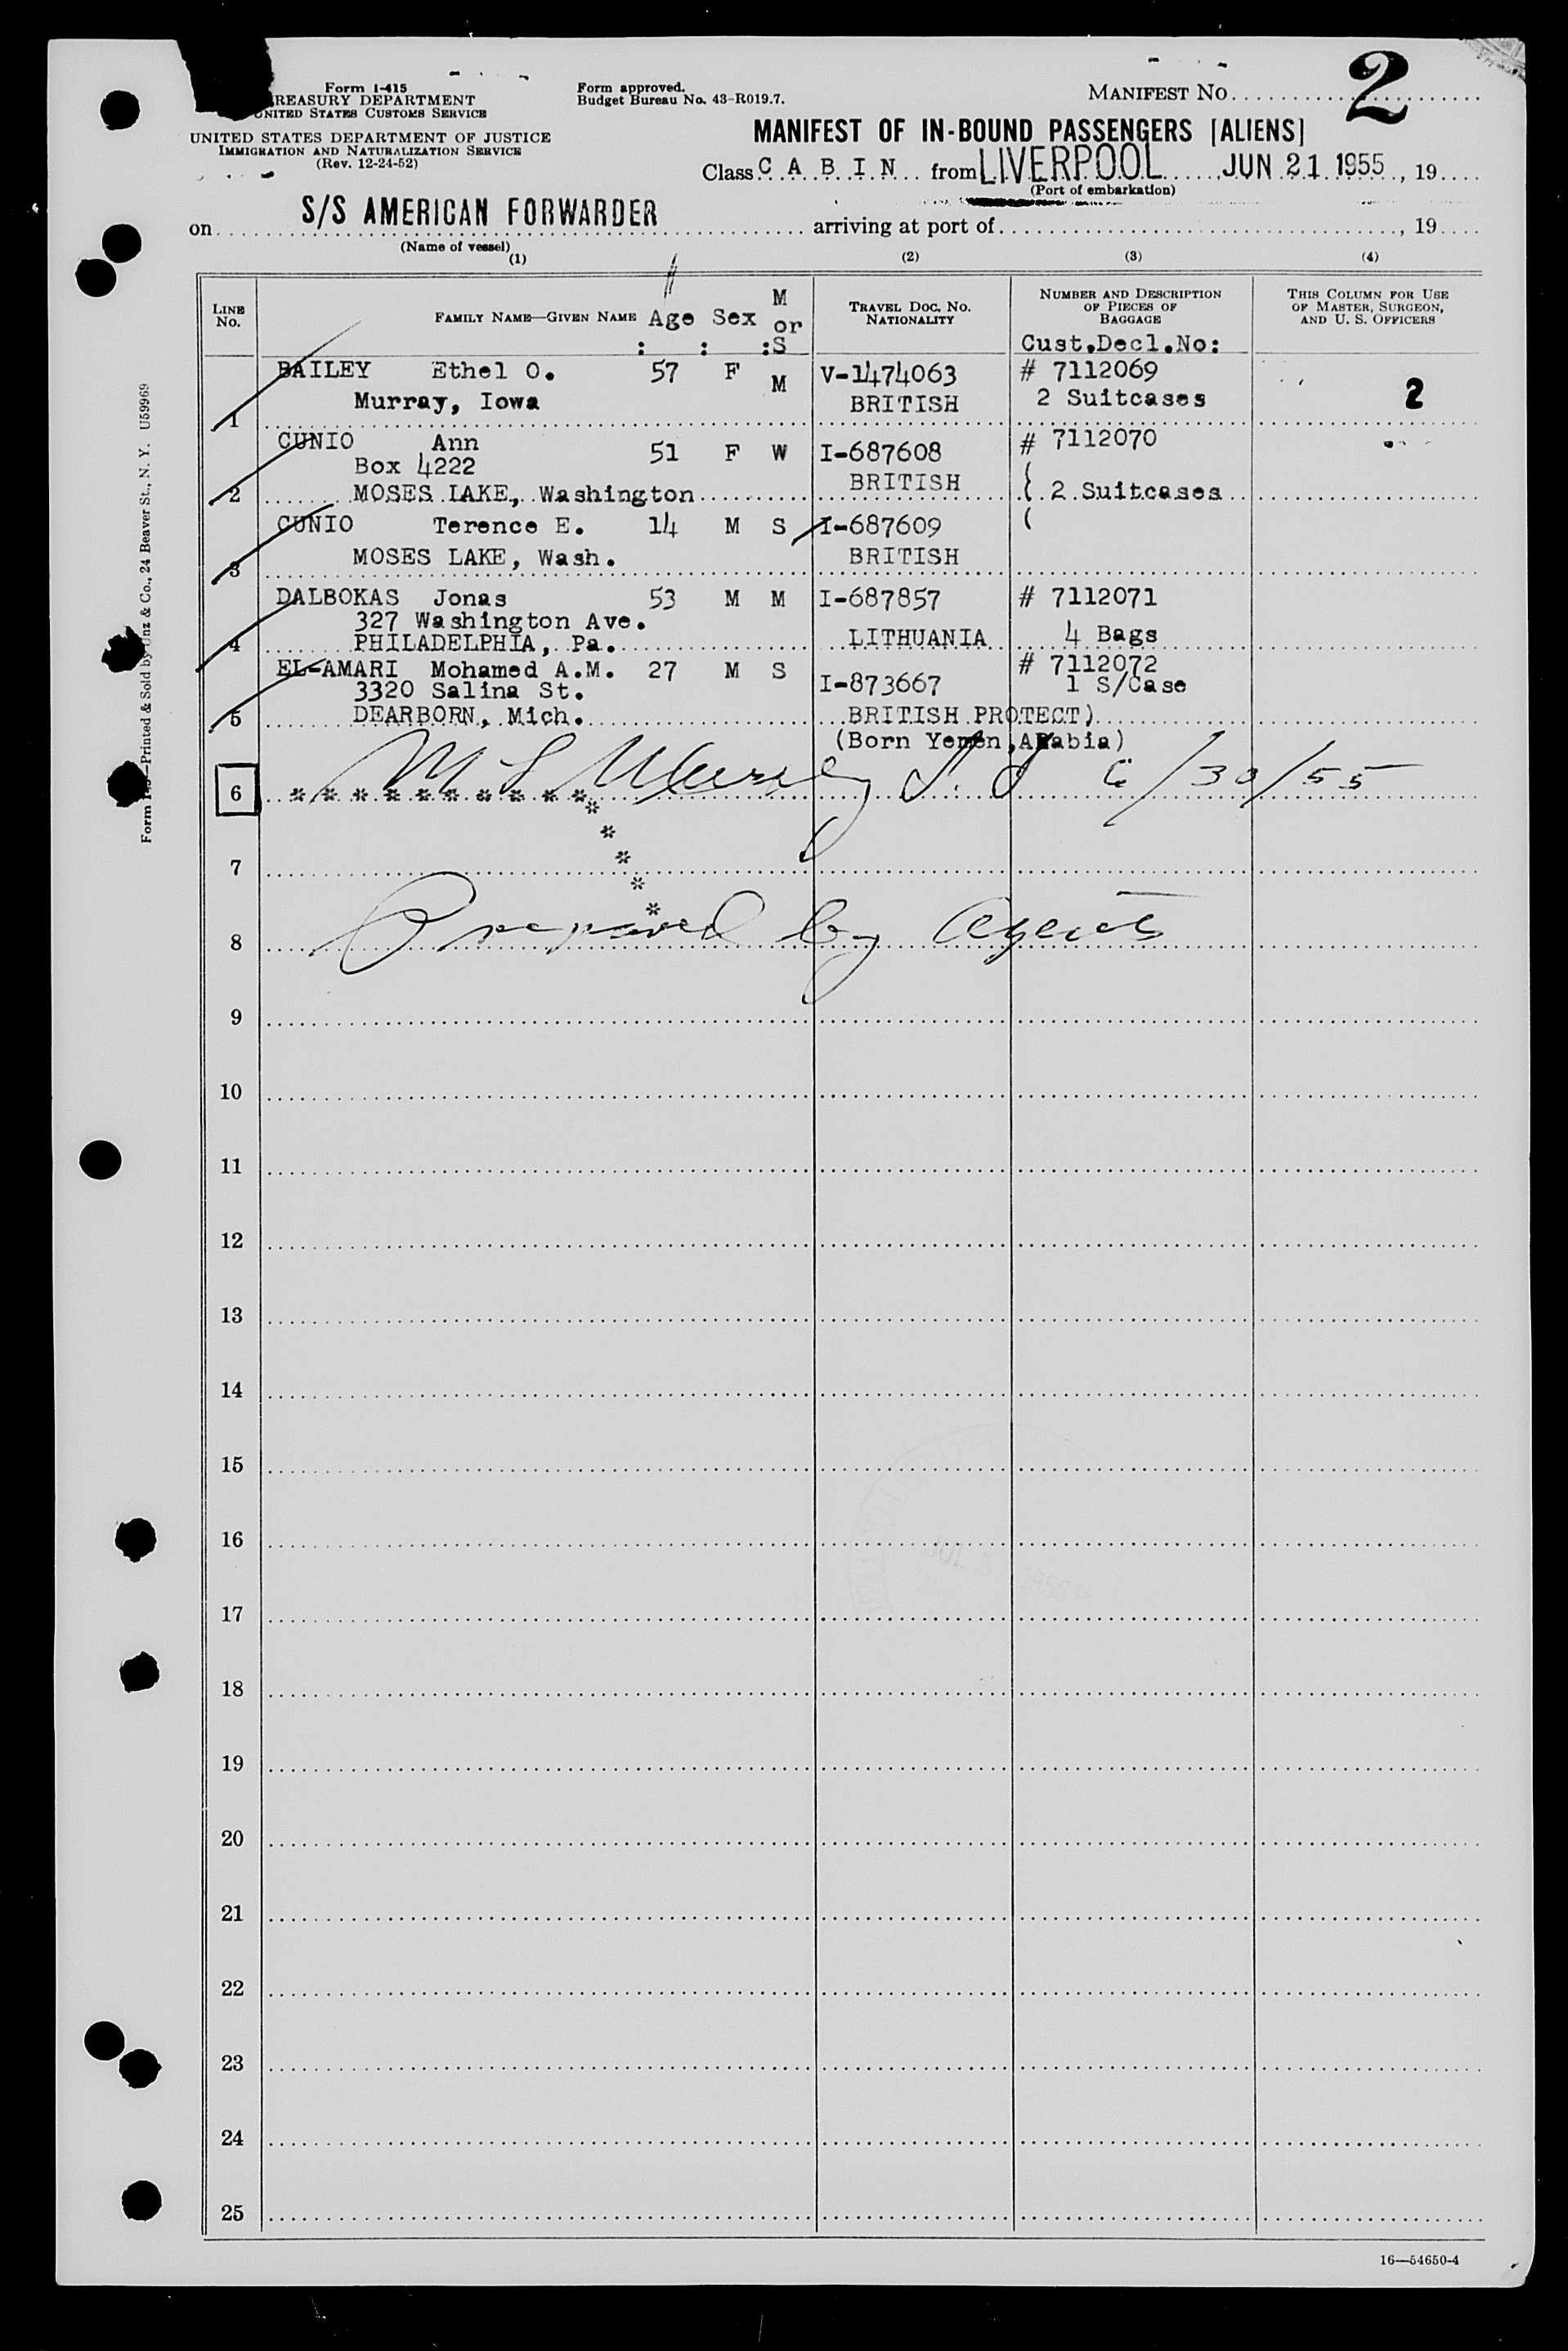 Form I-415
TREASURY DEPARTMENT
UNITED STATES CUSTOMS SERVICE
UNITED STATES DEPARTMENT OF JUSTICE
IMMIGRATION AND NATURALIZATION SERVICE
(Rev. 12-24-52)
Form approved.
Budget Bureau No. 43-R019.7.
MANIFEST NO. 2
MANIFEST OF IN-BOUND PASSENGERS [ALIENS]
Class C A B I N from LIVERPOOL JUN 21 1955, 19
(Port of embarkation)
on S/S AMERICAN FORWARDER arriving at port of , 19
(Name of vessel)
(1) (2) (3) (4)
LINE No. FAMILY NAME—GIVEN NAME Age Sex M or S TRAVEL DOC. NO. NATIONALITY NUMBER AND DESCRIPTION OF PIECES OF BAGGAGE THIS COLUMN FOR USE OF MASTER, SURGEON, AND U. S. OFFICERS
: : : Cust.Decl.No:
BAILEY Ethel O. 57 F M V-1474063 # 7112069
1 Murray, Iowa BRITISH 2 Suitcases 2
CUNIO Ann 51 F W I-687608 # 7112070
Box 4222 BRITISH (
2 MOSES LAKE, Washington ( 2 Suitcases
CUNIO Terence E. 14 M S I-687609 (
3 MOSES LAKE, Wash. BRITISH
DALBOKAS Jonas 53 M M I-687857 # 7112071
327 Washington Ave.
4 PHILADELPHIA, Pa. LITHUANIA 4 Bags
EL-AMARI Mohamed A.M. 27 M S I-873667 # 7112072
3320 Salina St. 1 S/Case
5 DEARBORN, Mich. BRITISH PROTECT)
(Born Yemen, Arabia)
6 * * * * * * * * * * 6/30/55
*
*
7 *
*
*
8 Prepared by Agents
9
10
11
12
13
14
15
16
17
18
19
20
21
22
23
24
25
16—54650-4
Printed & Sold by Unz & Co., 24 Beaver St., N. Y. U59969